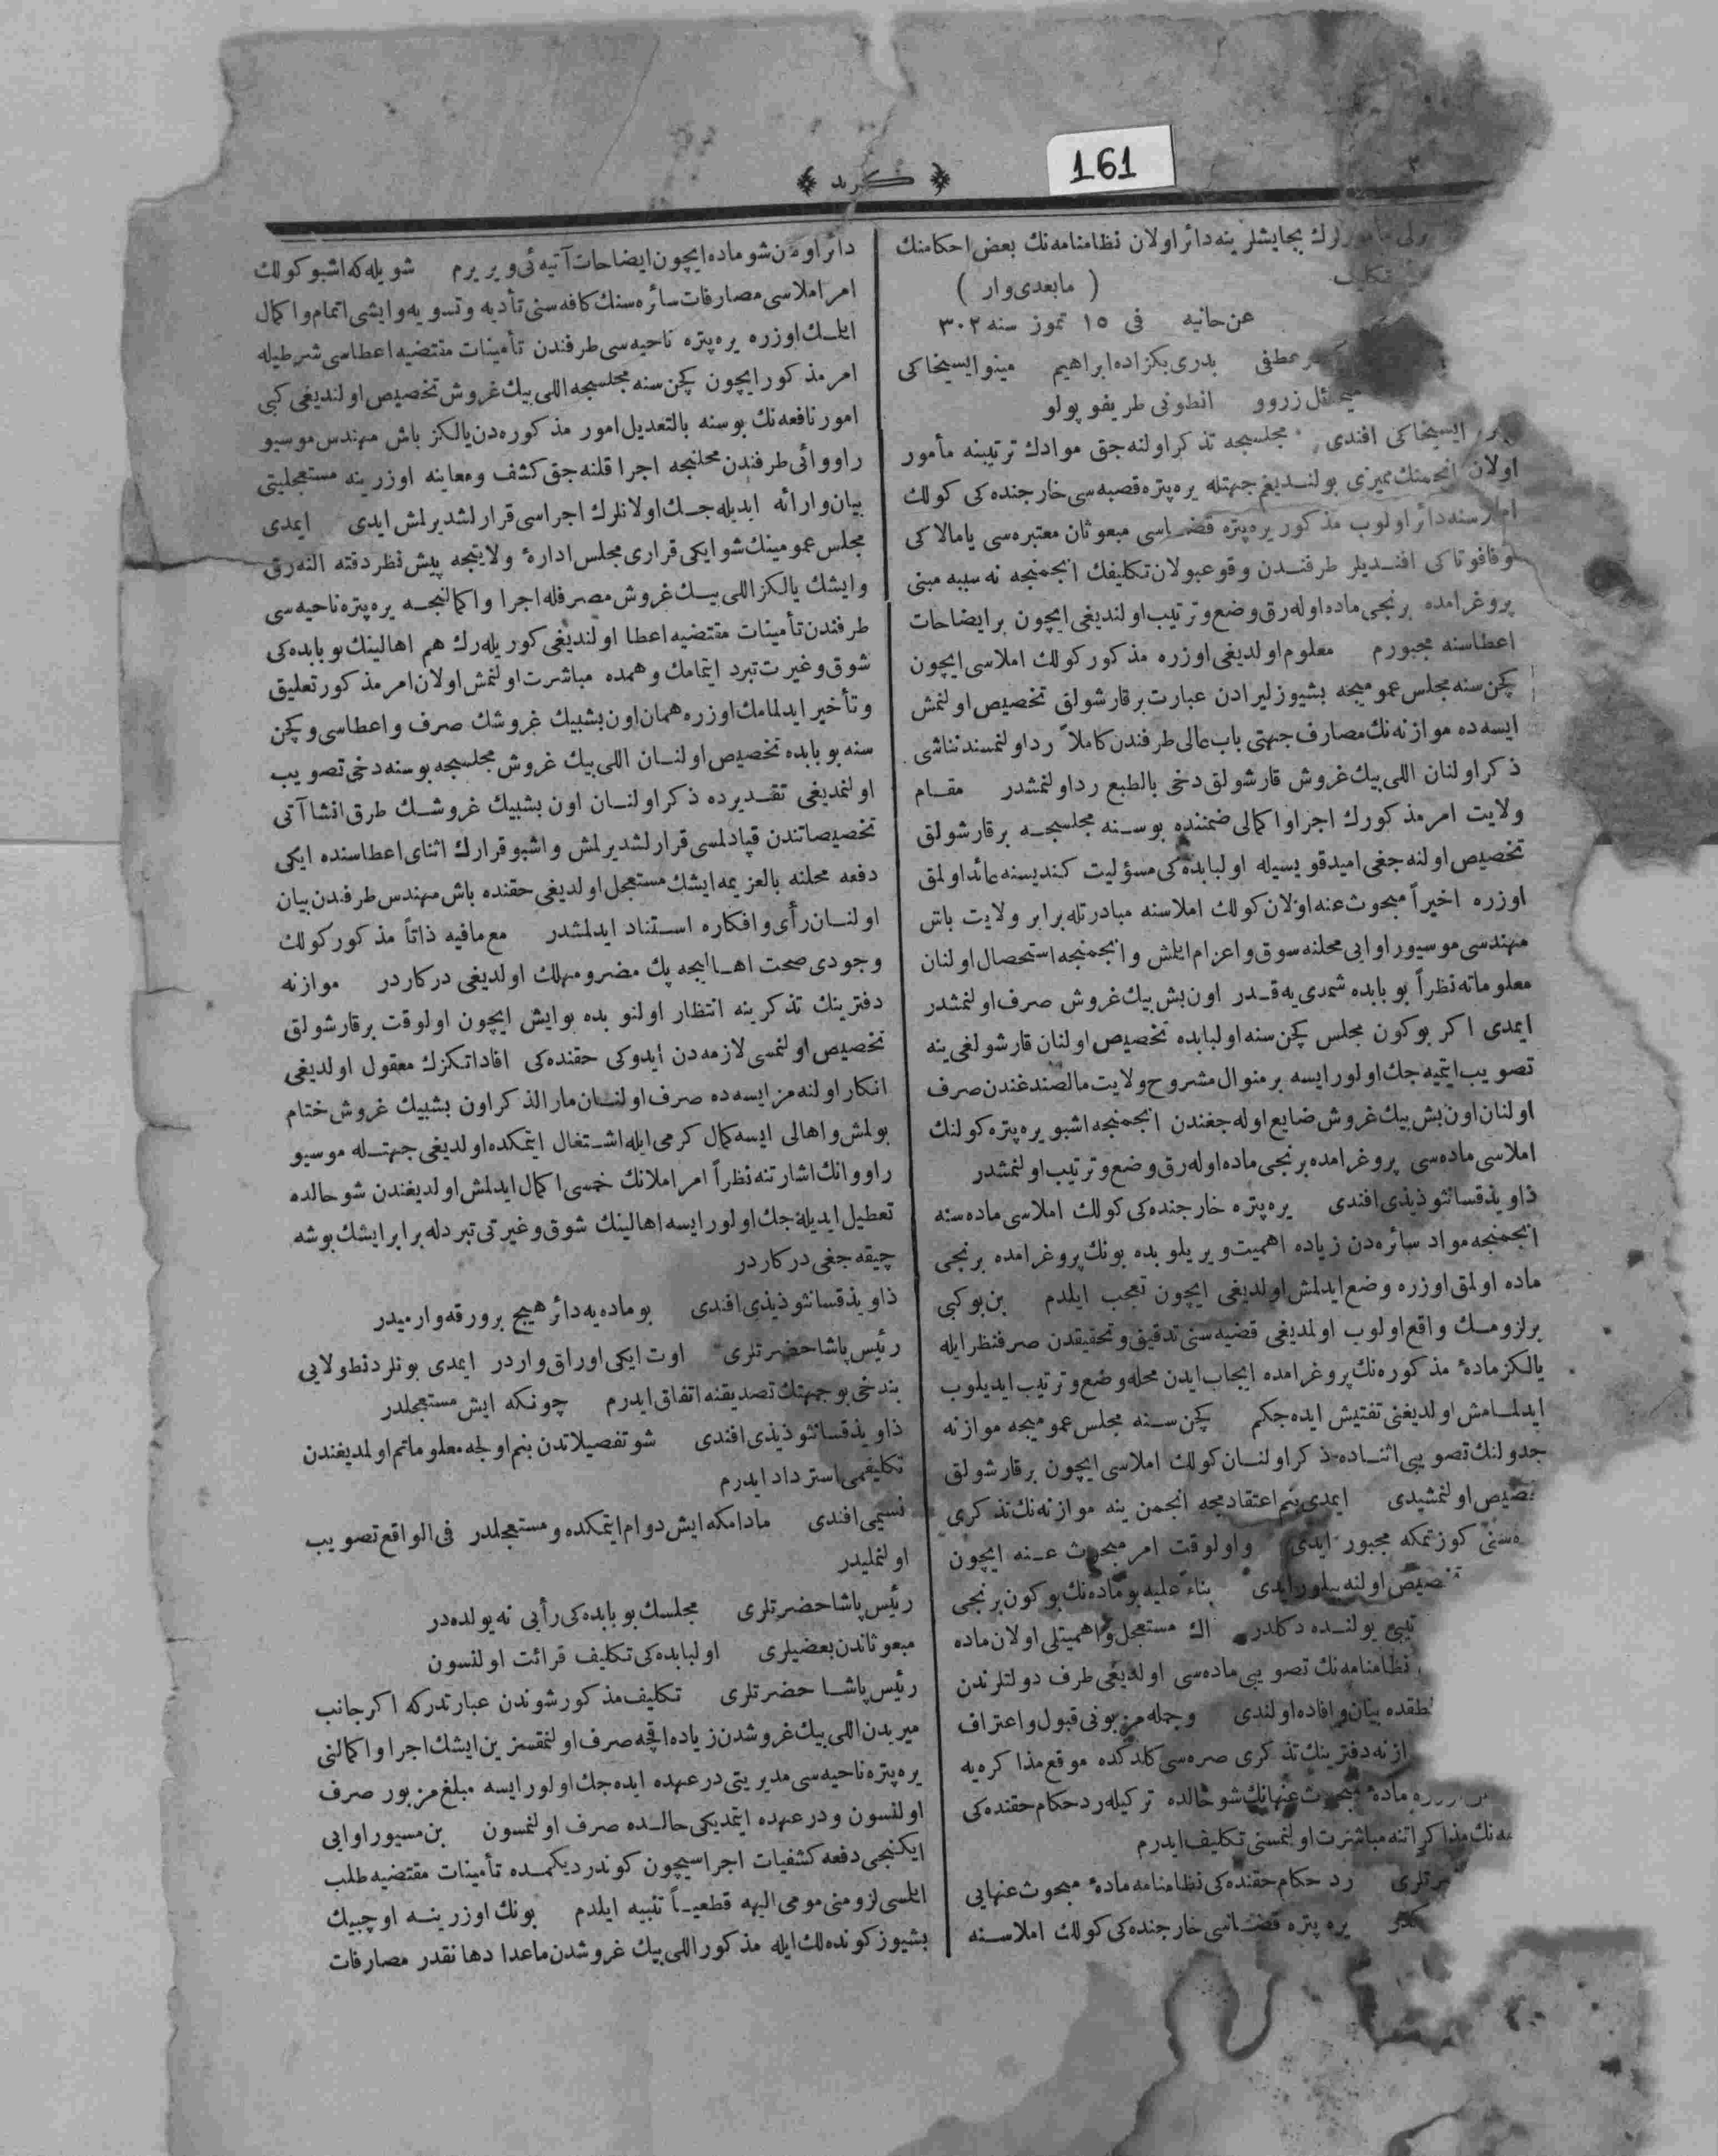 161
﴿ كريد ﴾
مأمورلرك بجايشلرينه دائر اولان نظامنامه‌نك بعض احكامنك
تكليف
( مابعدى وار )
عن حانيه فى ١٥ تموز سنه ٣٠٢
عطفى بدرى بكزاده ابراهيم مينو ايسيخاكى
زروو انطونى طريفوپولو
ايسيخاكى افندى مجلسجه تذكر اولنه‌جق موادك ترتيبنه مأمور
اولان انجمنك مميزى بولنديغم جهتله يره‌پتره قصبه‌سى خارجنده‌كى كولك
املاسنه دائر اولوب مذكور يره‌پتره قضاسى مبعوثان معتبره‌سى يامالاكى
وفافوتاكى افنديلر طرفندن وقوعبولان تكليفك انجمنجه نه سببه مبنى
پروغرامده برنجى ماده اوله‌رق وضع وترتيب اولنديغى ايچون بر ايضاحات
اعطاسنه مجبورم معلوم اولديغى اوزره مذكور كولك املاسى ايچون
كچن سنه مجلس عموميجه بشيوز ليرادن عبارت برقارشولق تخصيص اولنمش
ايسه‌ده موازنه‌نك مصارف جهتى باب عالى طرفندن كاملاً رد اولنمسندنناشى
ذكر اولنان اللى بيك غروش قارشولق دخى بالطبع رد اولنمشدر مقام
ولايت امر مذكورك اجرا واكمالى ضمننده بو سنه مجلسجه برقارشولق
تخصيص اولنه‌جغى اميدقويسيله اولبابده‌كى مسؤليت كنديسنه عائد اولمق
اوزره اخيراً مبحوث عنه اولان كولك املاسنه مبادرتله برابر ولايت باش
مهندسى موسيو راوايى محلنه سوق واعزام ايلمش وانجمنجه استحصال اولنان
معلوماته نظراً بو بابده شمدى‌يه قدر اون بش بيك غروش صرف اولنمشدر
ايمدى اكر بوكون مجلس كچن سنه اولبابده تخصيص اولنان قارشولغى ينه
تصويب ايتميه‌جك اولور ايسه بر منوال مشروح ولايت مالصندغندن صرف
اولنان اون بش بيك غروش ضايع اوله‌جغندن انجمنجه اشبو يره‌پتره كولنك
املاسى ماده‌سى پروغرامده برنجى ماده اوله‌رق وضع وترتيب اولنمشدر
ذاويذقسانثوذيذى افندى يره‌پتره خارجنده‌كى كولك املاسى ماده‌سنه
انجمنجه مواد سائره‌دن زياده اهميت ويريلوبده بونك پروغرامده برنجى
ماده اولمق اوزره وضع ايدلمش اولديغى ايچون تعجب ايلدم بن بوكبى
برلزومك واقع اولوب اولمديغى قضيه‌سنى تدقيق وتحقيقدن صرفنظر ايله
يالكز مادۀ مذكوره‌نك پروغرامده ايجاب ايدن محله وضع وترتيب ايديلوب
ايدلمامش اولديغنى تفتيش ايده‌جكم كچن سنه مجلس عموميجه موازنه
جدولنك تصويبى اثناده ذكر اولنان كولك املاسى ايچون برقارشولق
تخصيص اولنمشيدى ايمدى بنم اعتقادمجه انجمن ينه موازنه‌نك تذكرى
كوزتمكه مجبور ايدى واولوقت امر مبحوث عنه ايچون
تخصيص اولنه بيلور ايدى بناءً عليه بوماده‌نك بوكون برنجى
يولنده دكلدر اك مستعجل واهميتلى اولان ماده
نظامنامه‌نك تصويبى ماده‌سى اولديغى طرف دولتلرندن
نطقده بيان وافاده اولندى وجمله‌مز بونى قبول واعتراف
موازنه دفترينك تذكرى صره‌سى كلدكده موقع مذاكره‌يه
مادۀ مبحوث عنهانك شو حالده تركيله رد حكام حقنده‌كى
مذاكراتنه مباشرت اولنمسنى تكليف ايدرم
رد حكام حقنده‌كى نظامنامه مادۀ مبحوث عنهايى
يره‌پتره قضاسى خارجنده‌كى كولك املاسنه
دائر اولان شو ماده ايچون ايضاحات آتيه‌ئى ويريرم شويله‌كه اشبو كولك
امر املاسى مصارفات سائره‌سنك كافه‌سنى تأديه وتسويه وايشى اتمام واكمال
ايتمك اوزره يره‌پتره ناحيه‌سى طرفندن تأمينات مقتضيه اعطاسى شرطيله
امر مذكور ايچون كچن سنه مجلسجه اللى بيك غروش تخصيص اولنديغى كبى
امور نافعه‌نك بوسنه بالتعديل امور مذكوره‌دن يالكز باش مهندس موسيو
راووائى طرفندن محلنجه اجرا قلنه‌جق كشف ومعاينه اوزرينه مستعجليتى
بيان وارائه ايديله‌جك اولانلرك اجراسى قرارلشديرلمش ايدى ايمدى
مجلس عمومينك شو ايكى قرارى مجلس ادارۀ ولايتجه پيش نظر دقته النه‌رق
وايشك يالكز اللى بيك غروش مصرفله اجرا واكمالنجه يره‌پتره ناحيه‌سى
طرفندن تأمينات مقتضيه اعطا اولنديغى كوريله‌رك هم اهالينك بو بابده‌كى
شوق وغيرت تبرد ايتمامك وهمده مباشرت اولنمش اولان امر مذكور تعليق
وتأخير ايدلمامك اوزره همان اون بشبيك غروشك صرف واعطاسى وكچن
سنه بو بابده تخصيص اولنان اللى بيك غروش مجلسجه بوسنه دخى تصويب
اولنمديغى تقديرده ذكر اولنان اون بشبيك غروشك طرق انشاآتى
تخصيصاتندن قپادلمسى قرارلشديرلمش واشبو قرارك اثناى اعطاسنده ايكى
دفعه محلنه بالعزيمه ايشك مستعجل اولديغى حقنده باش مهندس طرفندن بيان
اولنان رأى وافكاره استناد ايدلمشدر مع مافيه ذاتاً مذكور كولك
وجودى صحت اهاليجه پك مضر ومهلك اولديغى دركاردر موازنه
دفترينك تذكرينه انتظار اولنوبده بوايش ايچون اولوقت برقارشولق
تخصيص اولنمسى لازمه‌دن ايدوكى حقنده‌كى افاداتكزك معقول اولديغى
انكار اولنه‌مز ايسه‌ده صرف اولنان مار الذكر اون بشبيك غروش ختام
بولمش واهالى ايسه كمال كرمى ايله اشتغال ايتمكده اولديغى جهتله موسيو
راووانك اشارتنه نظراً امر املانك خمسى اكمال ايدلمش اولديغندن شوحالده
تعطيل ايديله‌جك اولور ايسه اهالينك شوق وغيرتى تبردله برابر ايشك بوشه
چيقه‌جغى دركاردر
ذاويذقسانثوذيذى افندى بوماده‌يه دائر هيچ برورقه وارميدر
رئيس پاشا حضرتلرى اوت ايكى اوراق واردر ايمدى بونلردنطولايى
بندخى بوجهتك تصديقنه اتفاق ايدرم چونكه ايش مستعجلدر
ذاويذقسانثوذيذى افندى شو تفصيلاتدن بنم اولجه معلوماتم اولمديغندن
تكليفمى استرداد ايدرم
نسيمى افندى مادامكه ايش دوام ايتمكده ومستعجلدر فى الواقع تصويب
اولنمليدر
رئيس پاشا حضرتلرى مجلسك بو بابده‌كى رأيى نه يولده‌در
مبعوثاندن بعضيلرى اولبابده‌كى تكليف قرائت اولنسون
رئيس پاشا حضرتلرى تكليف مذكور شوندن عبارتدركه اكر جانب
ميريدن اللى بيك غروشدن زياده اقچه صرف اولنمقسزين ايشك اجرا واكمالنى
يره‌پتره ناحيه‌سى مديريتى درعهده ايده‌جك اولور ايسه مبلغ مزبور صرف
اولنسون ودرعهده ايتمديكى حالده صرف اولنمسون بن مسيو راوايى
ايكنجى دفعه كشفيات اجراسيچون كوندرديكمده تأمينات مقتضيه طلب
ايلمسى لزومنى مومى اليهه قطعياً تنبيه ايلدم بونك اوزرينه اوچبيك
بشيوز كونده‌لك ايله مذكور اللى بيك غروشدن ماعدا دها نقدر مصارفات